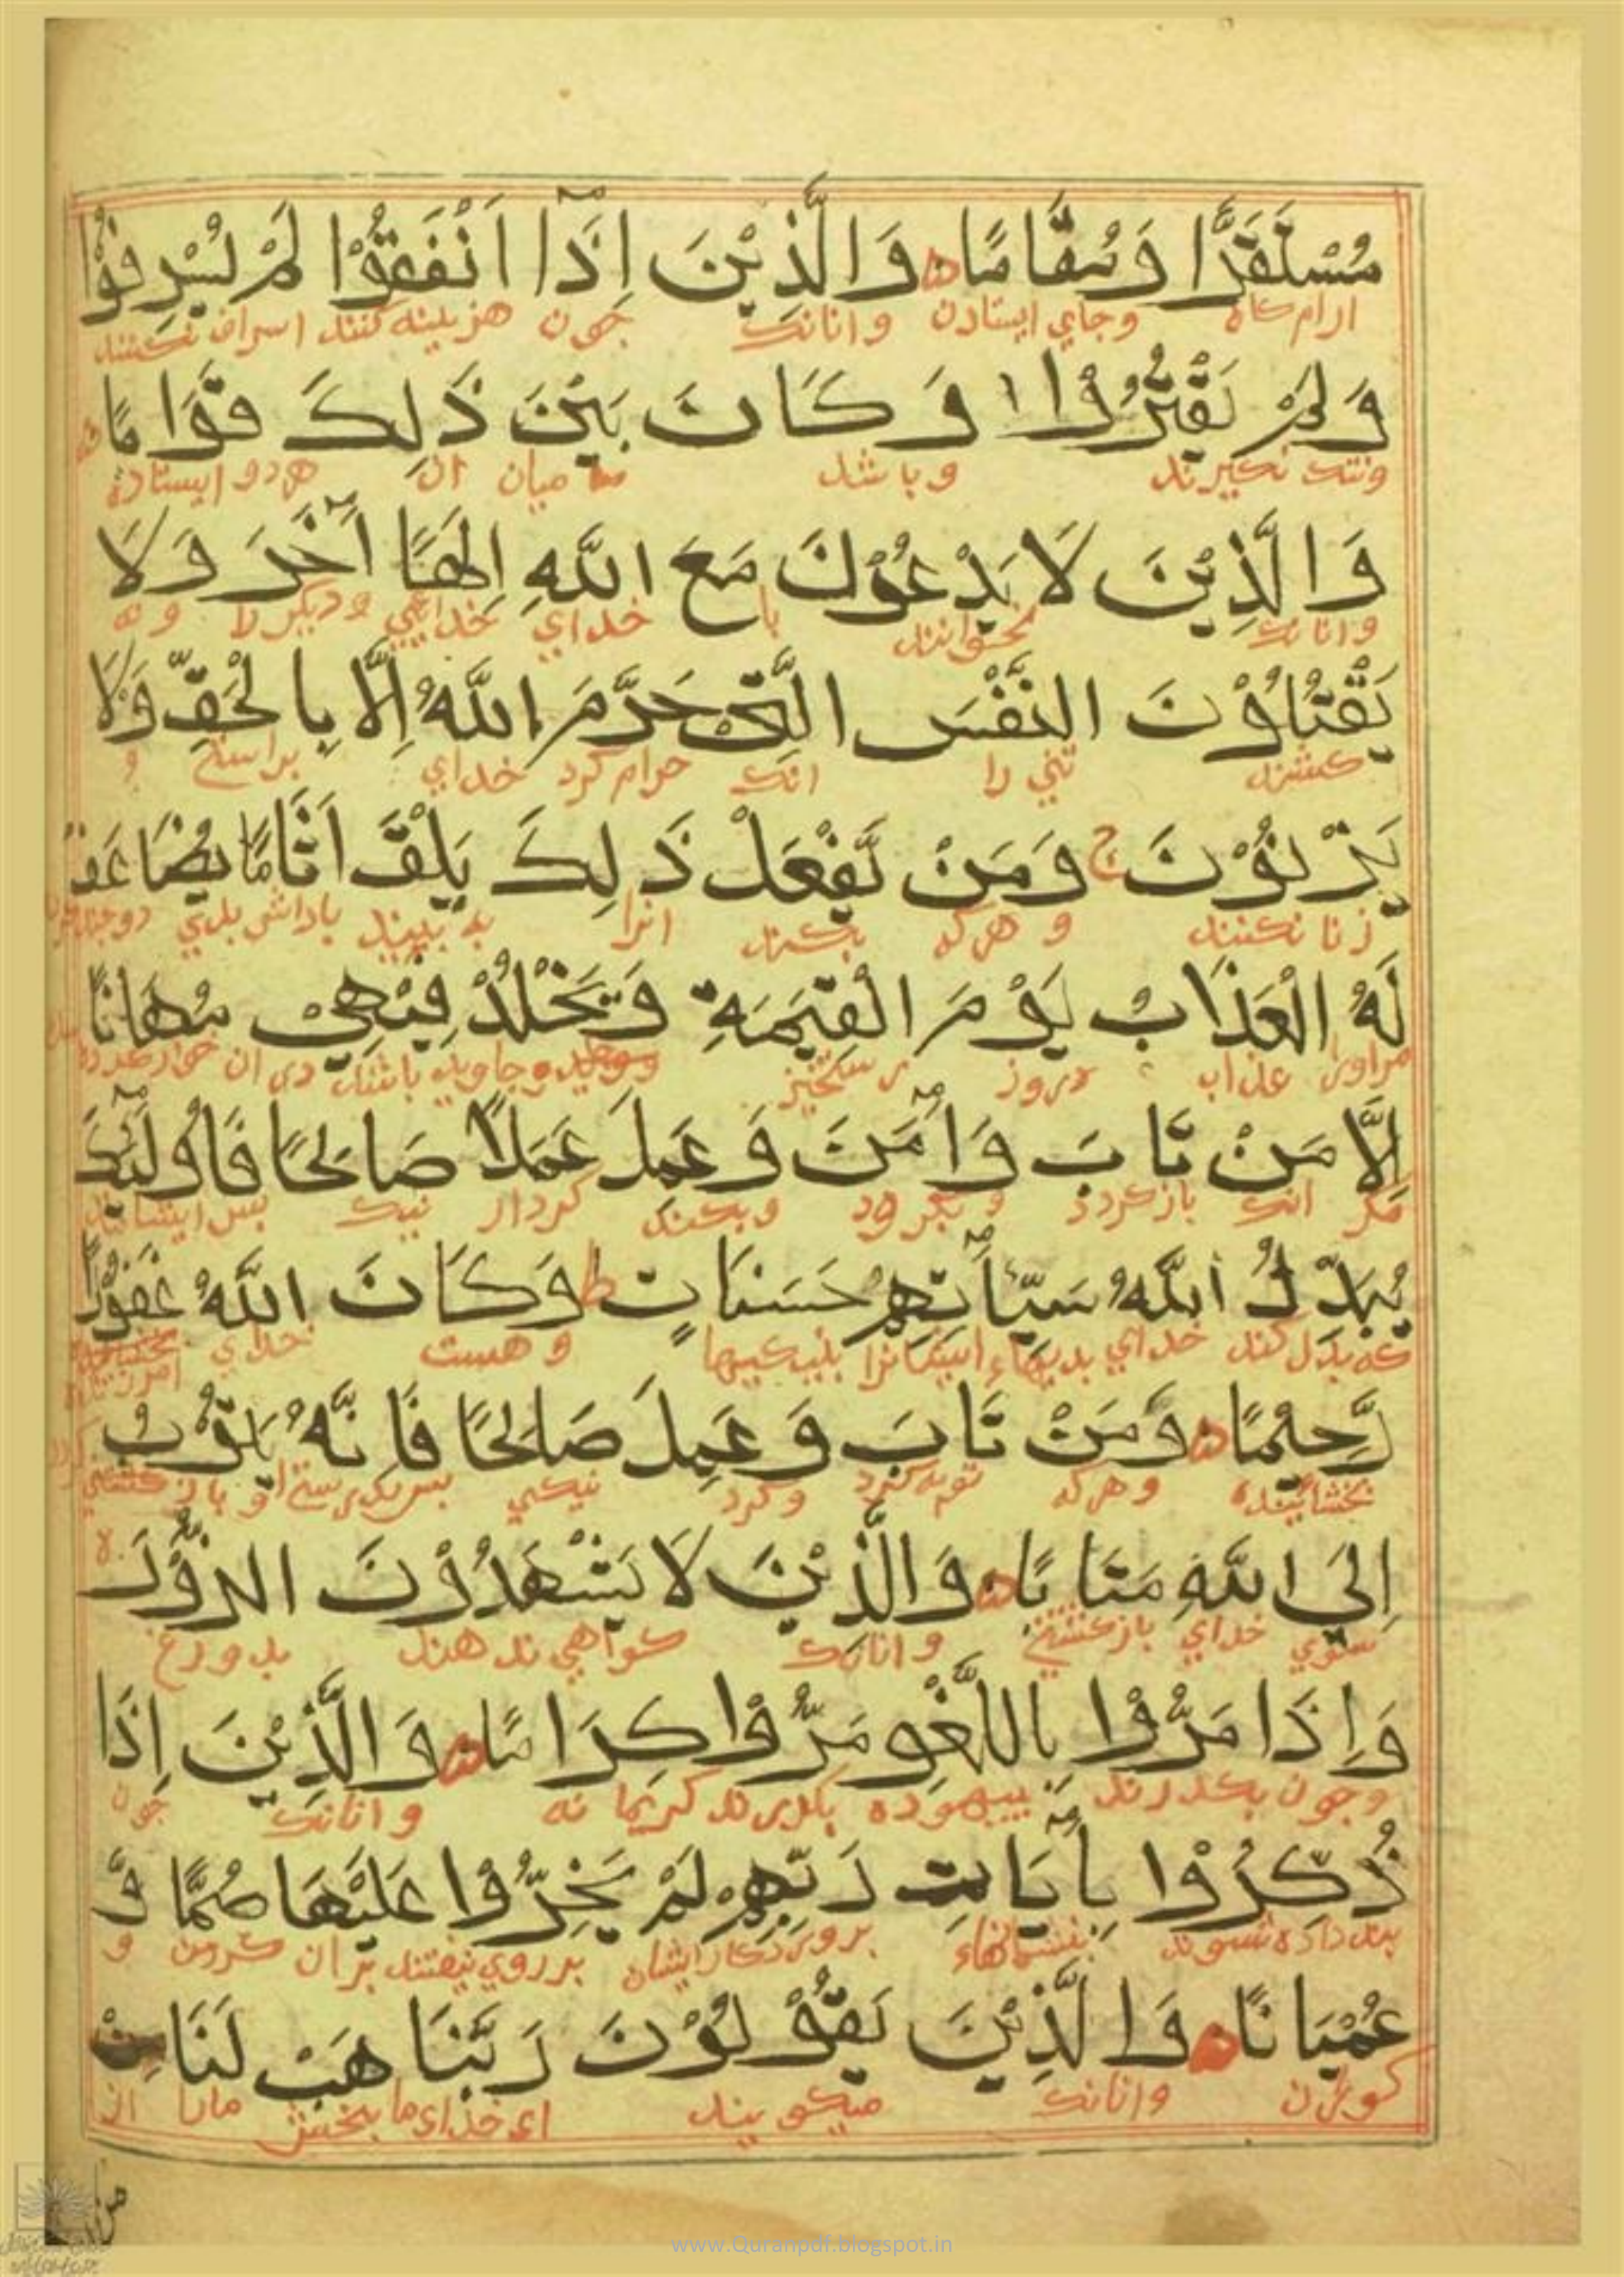 مُسْتَقَرًّا وَمُقَامًا ۰ وَالَّذِيْنَ اِذَآ اَنْفَقُوْا لَمْ يُسْرِفُوْا
ارام كاه وجاي ايستادن وانانك جون هزينه كنند اسراف نكنند
وَلَمْ يَقْتُرُوْا وَكَانَ بَيْنَ ذٰلِكَ قَوَامًا
وتنك نكيرند وباشد ميان ان هردو ايستاده
وَالَّذِيْنَ لَا يَدْعُوْنَ مَعَ اللّٰهِ اِلٰهًا اٰخَرَ وَلَا
وانانك نخوانند با خداي خدايي وديكر لا ونه
يَقْتُلُوْنَ النَّفْسَ الَّتِيْ حَرَّمَ اللّٰهُ اِلَّا بِالْحَقِّ وَلَا
كشند تني را انك حرام كرد خداي براستي و
يَزْنُوْنَ ج وَمَنْ يَّفْعَلْ ذٰلِكَ يَلْقَ اَثَامًا يُضَاعَفْ
زنا نكنند و هركه بكند انرا به بيند باداش بدي
لَهُ الْعَذَابُ يَوْمَ الْقِيٰمَةِ وَيَخْلُدْ فِيْهٖ مُهَانًا
مراورا عذاب روز رستخيز وجاويد باشد دران خوار
اِلَّا مَنْ تَابَ وَاٰمَنَ وَعَمِلَ عَمَلًا صَالِحًا فَاُولٰٓئِكَ
مكر انك بازكردد و بكرود وبكند كردار نيك بس ايشانند
يُبَدِّلُ اللّٰهُ سَيِّاٰتِهِمْ حَسَنَاتٍ ط وَكَانَ اللّٰهُ غَفُوْرًا
كه بدل كند خداي بديهاء ايشانرا بنيكيها وهست خداي
رَّحِيْمًا ۰ وَمَنْ تَابَ وَعَمِلَ صَالِحًا فَاِنَّهُ يَتُوْبُ
بخشاينده وهركه توبه كرد وكرد نيكي بس بدرستي
اِلَى اللّٰهِ مَتَابًا ۰ وَالَّذِيْنَ لَا يَشْهَدُوْنَ الزُّوْرَ
سوي خداي بازكشتني وانانك كواهي ندهند بدورغ
وَاِذَا مَرُّوْا بِاللَّغْوِ مَرُّوْا كِرَامًا ۰ وَالَّذِيْنَ اِذَا
وجون بكذرند ببيهوده بكذرند كريمانه وانانك جون
ذُكِّرُوْا بِاٰيَاتِ رَبِّهِمْ لَمْ يَخِرُّوْا عَلَيْهَا صُمًّا وَّ
بندداده شوند بنشانهاء بروردكار ايشان برروي نيفتند بران كرون و
عُمْيَانًا ۰ وَالَّذِيْنَ يَقُوْلُوْنَ رَبَّنَا هَبْ لَنَا مِنْ
كوران وانانك ميكويند اي خداي ما ببخش مارا از
www.Quranpdf.blogspot.in